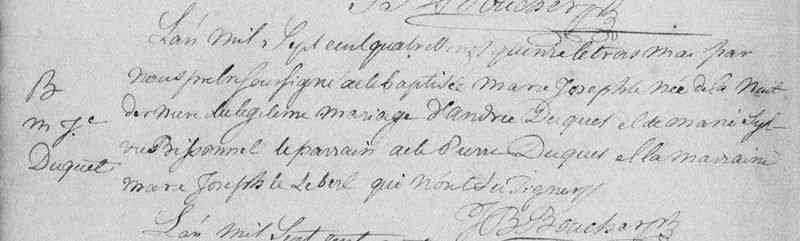 J B Boucher ptr
L'an mil Sept cent quatre vingt quinze le trois mai par
B
nous prêtre Soussigné a ete baptisée Marie Josephte Née de la Nuit
derniere du legitime mariage d'Andrée Duquet et de Marie Syl-
m Je
vie Brissonnet le parrain a ete Pierre Duquet et la marraine
Duquet
Marie Josephte Leberl qui n'ont sçu Signer
J B Boucher ptr
L'an Mil Sept cent